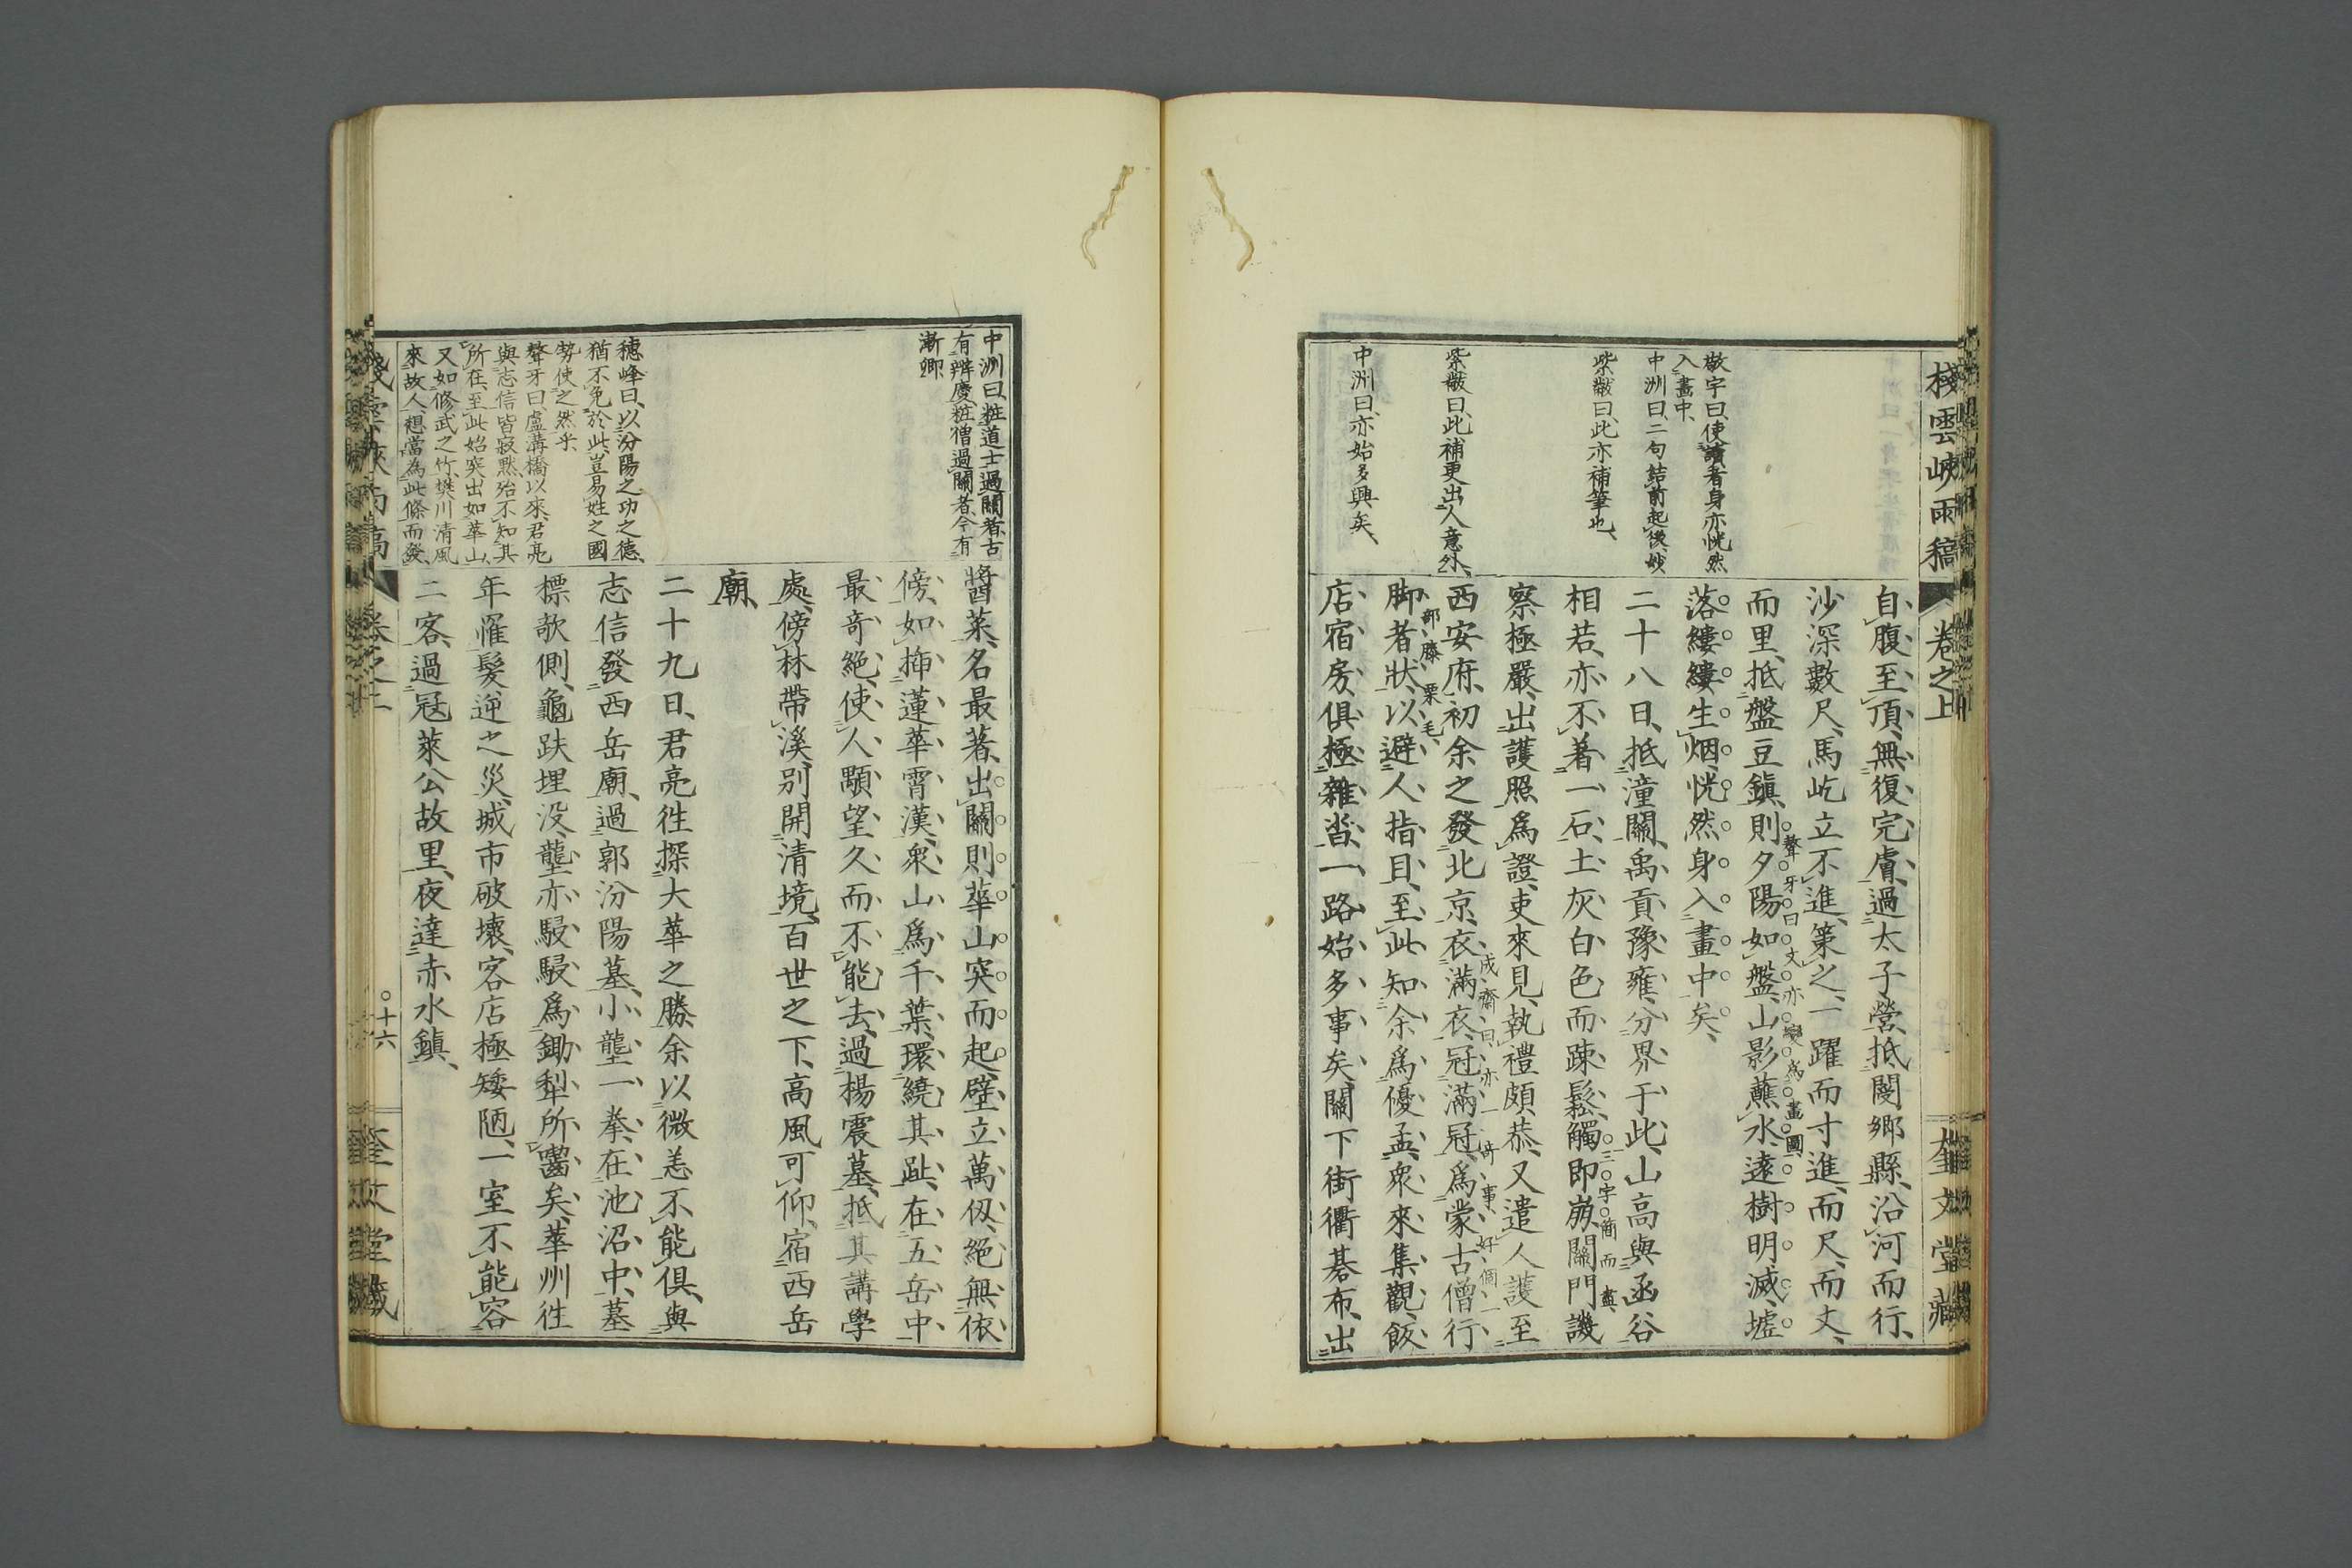 棧雲峽雨稿
卷之上
奎文堂藏
敬宇曰、使讀者身亦恍然
入畫中、
中洲曰、二句結前起後、妙
紫瀲曰、此亦補筆也、
紫瀲曰、此補更出人意外、
中洲曰、亦始多興矣、
自腹至頂、無復完膚、過太子營、抵閿鄉縣、沿河而行、
沙深數尺、馬屹立不進、策之、一躍而寸進、而尺、而丈、
而里、抵盤豆鎭、則夕陽如盤、山影蘸水、遠樹明滅、墟
聱牙曰文亦變爲畫圖、
落縷縷生烟、恍然身入畫中矣、
二十八日、抵潼關、禹貢豫雍、分界于此、山高與函谷
相若、亦不著一石、土灰白色而疎鬆、觸卽崩、關門譏
三字簡而盡、
察極嚴、出護照爲證、吏來見、執禮頗恭、又遣人護至
西安府、初余之發北京、衣滿衣、冠滿冠、爲蒙古僧行
成齋曰、亦一奇事、好個一
脚者狀、以避人指目、至此知余爲優孟、衆來集觀、飯
部膝栗毛、
店宿房、俱極雜沓、一路始多事矣、關下街衢碁布、出
中洲曰、粧道士過關者、古
有辨慶粧僧過關者、今有
漸卿、
穗峰曰、以汾陽之功之德、
猶不免於此、豈易姓之國
勢使之然乎、
聱牙曰盧溝橋以來、君亮
與志信皆寂默、殆不知其
所在、至此始突出如華山、
又如修武之竹、樊川清風
來故人、想當為此條而發、
醬菜、名最著、出關則華山突而起、壁立萬仞、絕無依
傍、如揷蓮華霄漢、衆山爲千葉、環繞其趾、在五岳中
最奇絕、使人顒望久而不能去、過楊震墓、抵其講學
處、傍林帶溪、別開清境、百世之下、高風可仰、宿西岳
廟、
二十九日、君亮往探大華之勝、余以微恙不能俱、與
志信發西岳廟、過郭汾陽墓、小壟一拳、在池沼中、墓
標欹側、龜趺埋沒、壟亦駸駸爲鋤犁所齧矣、華州往
年罹髮逆之災、城市破壞、客店極矮陋、一室不能容
二客、過寇萊公故里、夜達赤水鎭、
棧雲峽雨稿
卷之上
十六
奎文堂藏